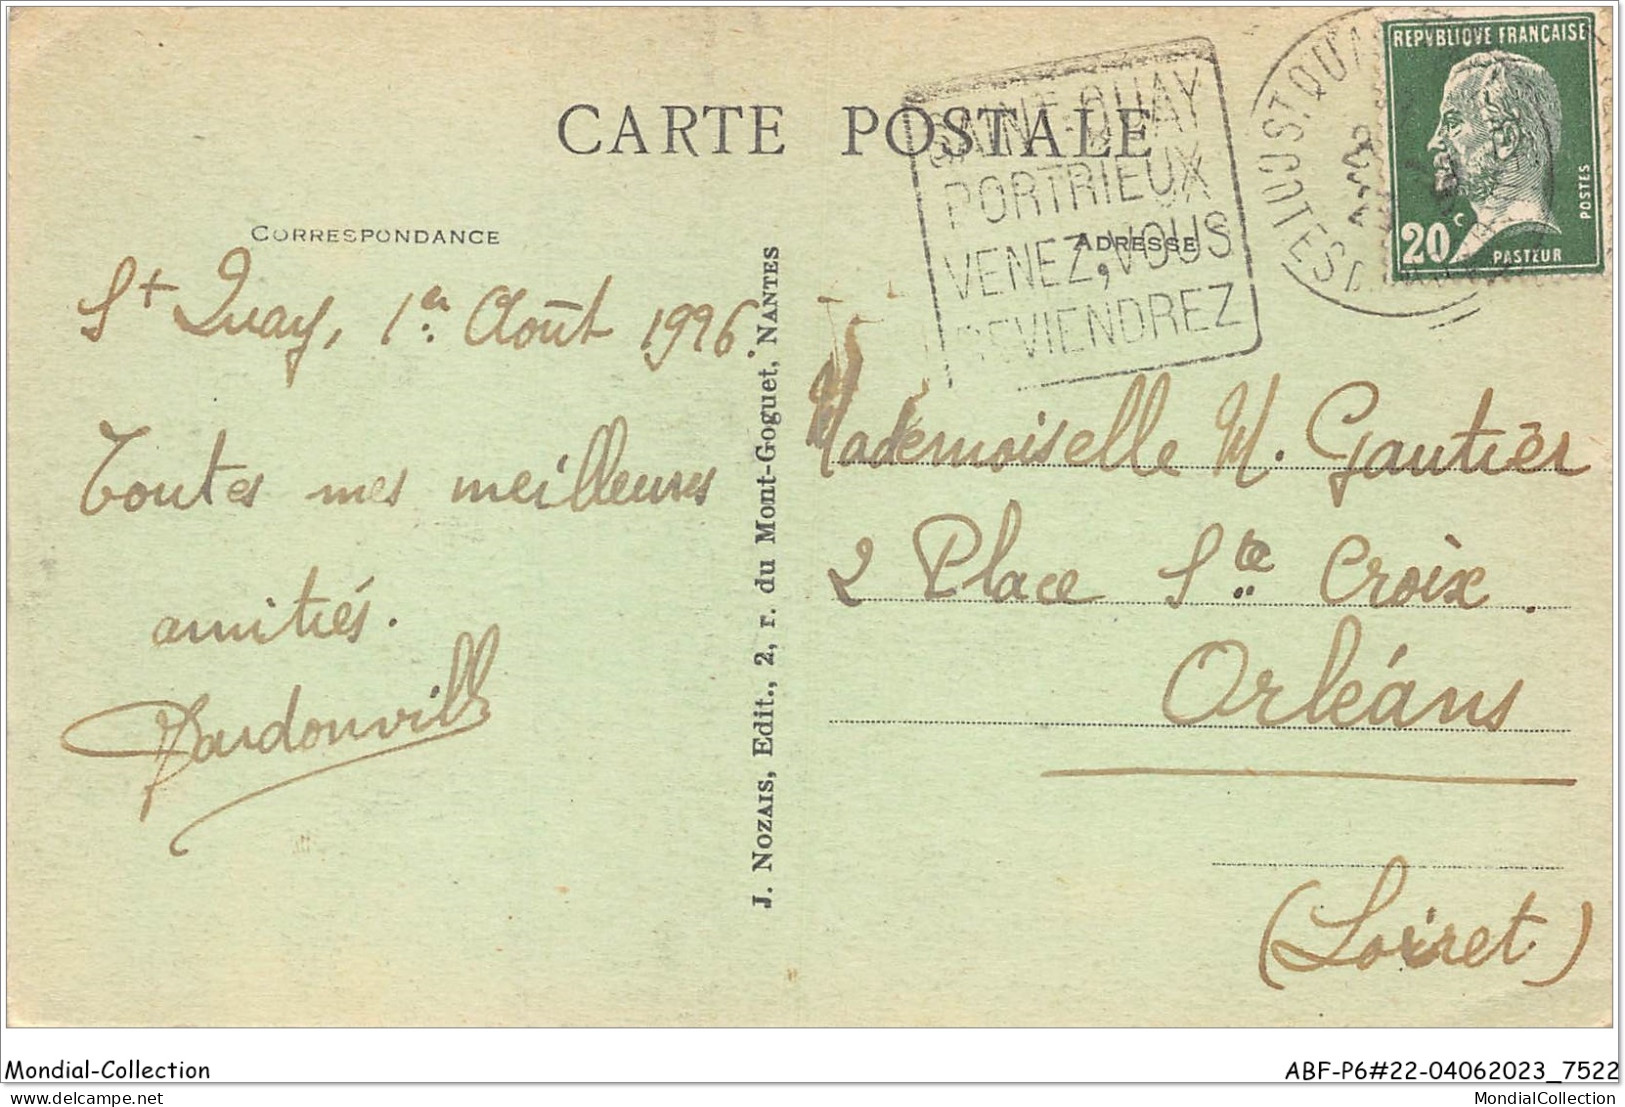 CARTE POSTALE
SAINT-QUAY
PORTRIEUX
VENEZ, VOUS
REVIENDREZ
REPVBLIQVE FRANÇAISE
20c
POSTES
PASTEUR
CORRESPONDANCE
ADRESSE
St Quay, 1er Août 1926.
Toutes mes meilleures
amitiés.
J. NOZAIS, Edit., 2, r. du Mont-Goguet, NANTES
Mademoiselle M. Gautier
2 Place Ste Croix.
Orléans
(Loiret)
Mondial-Collection
ABF-P6#22-04062023_7522
www.delcampe.net
MondialCollection